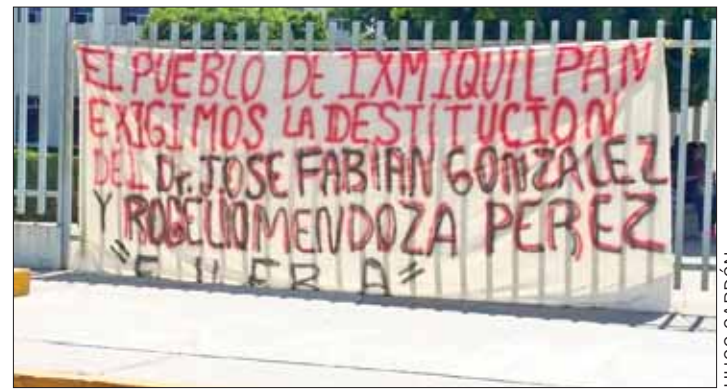 EL PUEBLO DE IXMIQUILPAN
EXIGIMOS LA DESTITUCION
DEL Dr. JOSE FABIAN GONZALEZ
Y ROGELIO MENDOZA PEREZ
"FUERA"